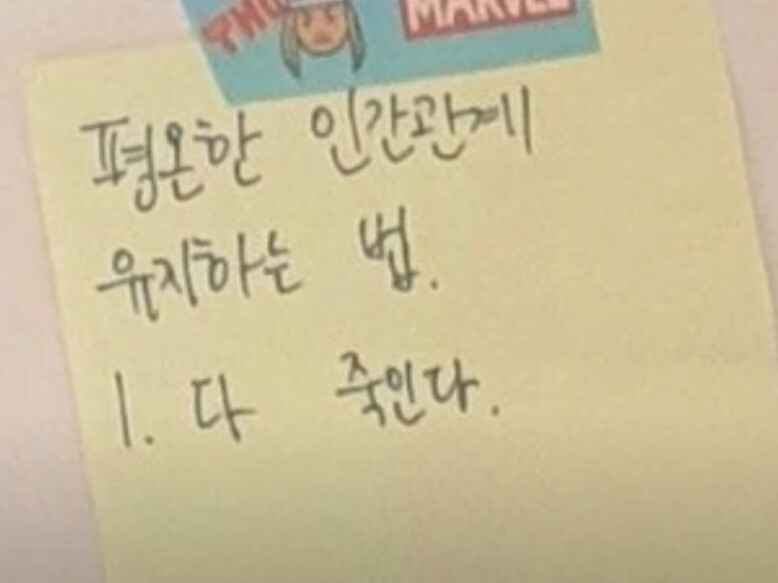 THO
MARVEL
평온한 인간관계
유지하는 법.
1. 다 죽인다.